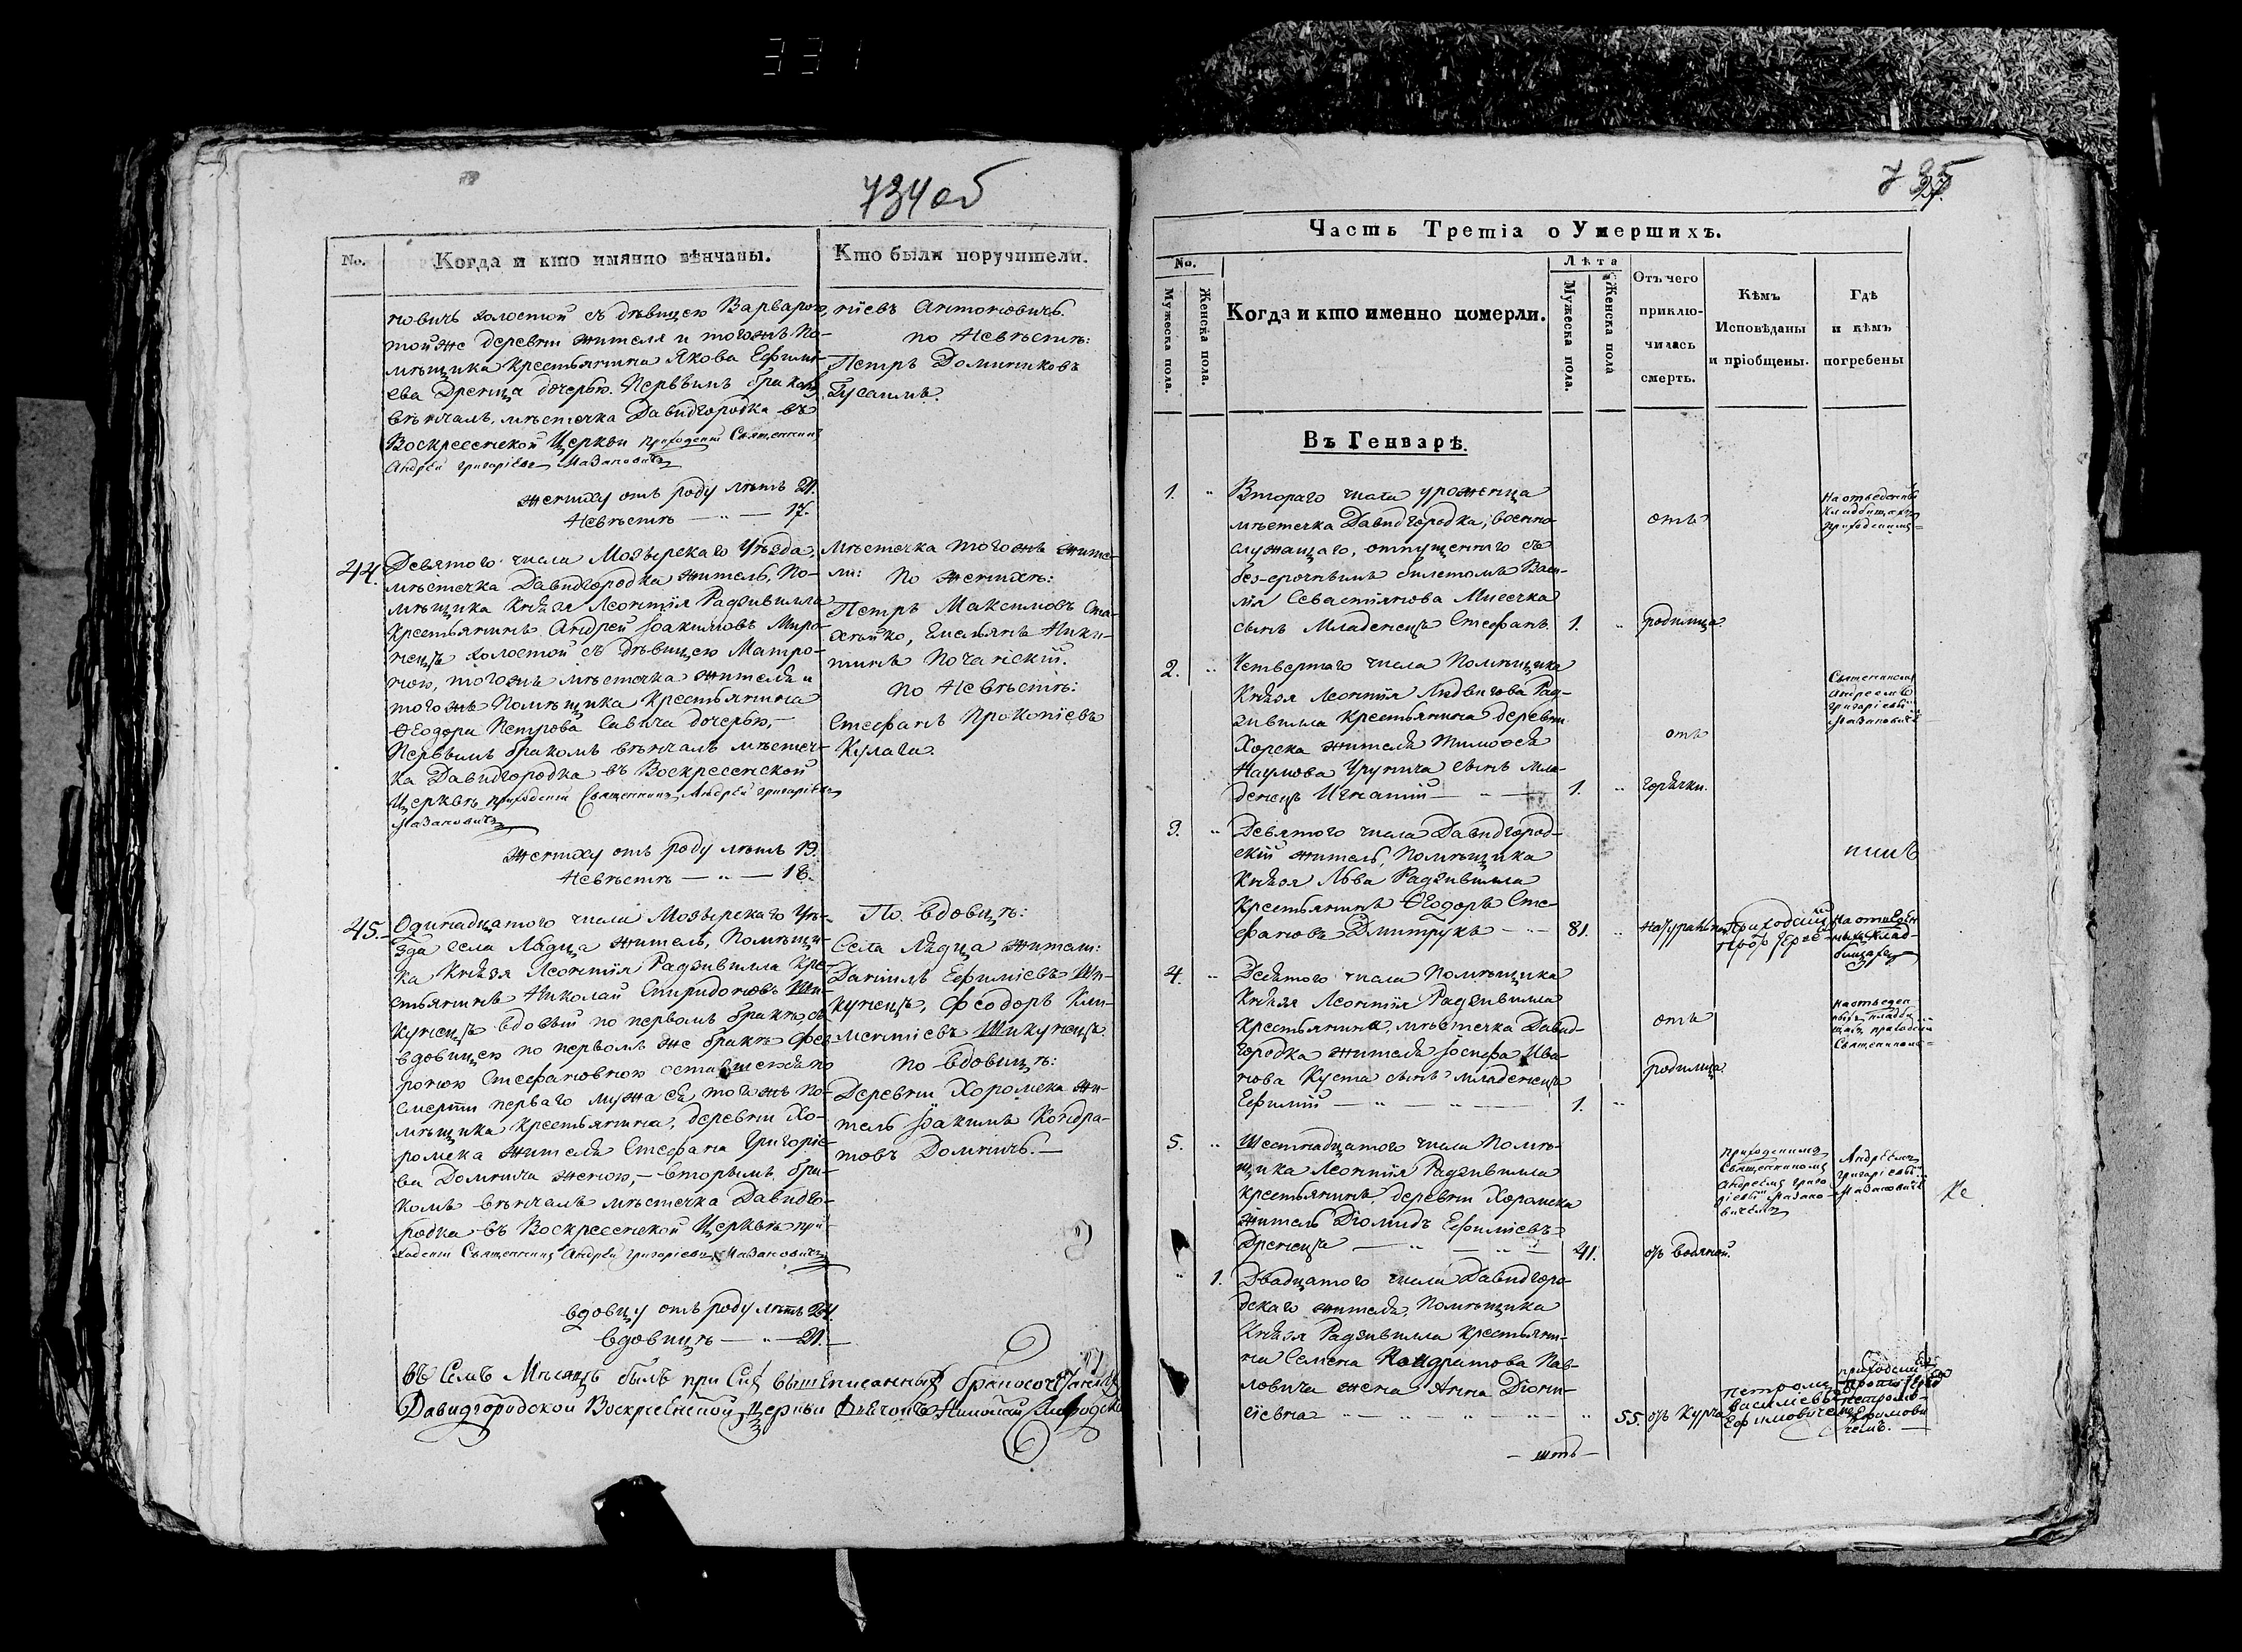 331
734 об
No.
Когда и кто имянно вѣнчаны.
Кто были поручители.
новичъ холостой съ дѣвицею Варварою,
тойже деревни жителя и тогожъ По-
мѣщика Крестьянина Якова Ефимі-
ева Дренца дочерью. Первымъ бракомъ
вѣнчалъ, мѣстечка Давидгородка въ
Воскресенской Церкви приходскій Священникъ
Андрей Григоріевъ Мазановичъ
жениху отъ роду лѣтъ 21.
Невѣстѣ — „ — 17.
ніевъ Антоновичъ.
по Невѣстѣ:
Петръ Доминиковъ
44.
Девятого числа Мозырскаго Уѣзда,
мѣстечка Давидгородка житель, По-
мѣщика Князя Леонтія Радзивилла
Крестьянинъ Андрей Іоакимовъ Миро-
нецъ холостой съ дѣвицею Матро-
ною, тогожъ мѣстечка жителя и
тогожъ Помѣщика Крестьянина
Ѳеодора Петрова Савича дочерью, —
Первымъ бракомъ вѣнчалъ мѣстеч-
ка Давидгородка въ Воскресенской
Церквѣ приходскій Священникъ Андрей Григоріевъ
Мазановичъ
жениху отъ роду лѣтъ 19.
Невѣстѣ — „ — 18.
мѣстечка тогожъ жите-
ли: По женихѣ:
Петръ Максимовъ Ста-
хнѣйко, Емельянъ Ники-
тинъ Почанскій.
по Невѣстѣ:
Стефанъ Прокопіевъ
Кулага.
45.
Одинадцатого числа Мозырскаго Уѣ-
зда села Лядца житель, Помѣщи-
ка Князя Леонтія Радзивилла Кре-
стьянинъ Николай Спиридоновъ Ши-
кунецъ вдовый по первомъ бракѣ, съ
вдовицею по первомъ же бракѣ Фев-
роною Стефановною оставшеюся по
смерти перваго мужа ея тогожъ По-
мѣщика Крестьянина, деревни Хо-
ромска жителя Стефана Григоріе-
ва Домнича женою, — вторымъ бра-
комъ вѣнчалъ мѣстечка Давидго-
родка въ Воскресенской Церквѣ при-
ходскій Священникъ Андрей Григоріевъ Мазановичъ
вдовцу отъ роду лѣтъ 24.
вдовицѣ — „ — 21.
По вдовцѣ:
Села Лядца жители:
Даніилъ Ефиміевъ Ши-
кунецъ, Феодоръ Кли-
ментіевъ Шикунецъ
по вдовицѣ:
Деревни Хоромска жи-
тель Іоакимъ Кондра-
товъ Домничъ. —
Въ семъ Мѣсяцѣ былъ при сихъ вышеписанныхъ
Давидгородской Воскресенской Церкви Дьячокъ Николай
735
Часть Третія о Умершихъ.
No.
Мужеска пола.
Женска пола.
Когда и кто именно померли.
Лѣта
Мужеска пола.
Женска пола
Отъ чего
приклю-
чилась
смерть.
Кѣмъ
Исповѣданы
и пріобщены.
Гдѣ
и кѣмъ
погребены
Въ Генварѣ.
1. „ Втораго числа уроженца
мѣстечка Давидгородка, военно-
служащаго, отпущеннаго съ
без-срочнымъ билетомъ Васи-
лія Севастіянова Мисечка
сынъ Младенецъ Стефанъ. 1. „
отъ
родимца.
На отведенныхъ
Кладбищахъ
приходскимъ
2. „ Четвертого числа Помѣщика
Князя Леонтія Людвигова Рад-
зивилла Крестьянина деревни
Хорска жителя Тимоѳея
Наумова Урунича сынъ мла-
денецъ Игнатій — „ — 1. „
отъ
горячки.
Священникомъ
Андреемъ
Григоріевымъ
Мазановичемъ
3. „ Девятого числа Давидгород-
скій житель, Помѣщика
Князя Льва Радзивилла
Крестьянинъ Ѳеодоръ Сте-
фановъ Дмитрукъ — „ — 81. „
На отведен
ныхъ Клад-
бищахъ
4. „ Десятого числа Помѣщика
Князя Леонтія Радзивилла
Крестьянина, мѣстечка Давид-
городка жителя Іосифа Ива-
нова Куста сынъ младенецъ
Ефимій — „ — „ — 1. „
отъ
родимца.
на отведен
ныхъ кладби
щахъ приходскимъ
Священникомъ
5. „ Шестнадцатого числа Помѣ-
щика Леонтія Радзивилла
Крестьянинъ, деревни Хоромска
житель Діомидъ Ефиміевъ
Дренецъ — „ — „ — 41.
отъ водяной.
приходскимъ
Священникомъ
Андреемъ Григо
ріевымъ Мазано-
вичемъ
Андреемъ
Григоріевымъ
Мазановичемъ
„ 1. Двадцатого числа Давидгоро-
дскаго жителя, Помѣщика
Князя Радзивилла Крестьяни-
на Семена Кондратова Пав-
ловича жена Анна Діони-
сіевна — „ — „ — „ — „ 55.
Петромъ
Василіевымъ
Ефимовичемъ